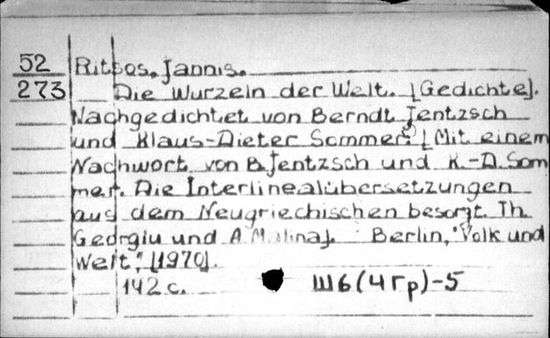 52 Ritsos, Jannis.
273 Die Wurzeln der Welt. [Gedichte].
Nachgedichtet von Berndt Jentzsch
und Klaus-Dieter Sommer. [Mit einem
Nachwort von B. Jentzsch und K.-D. Som
mer. Die Interlinealübersetzungen
aus dem Neugriechischen besorgt. Th.
Georgiu und A. Malina]. Berlin, "Volk und
Welt", [1970].
142 с. Ш6(4Гр)-5